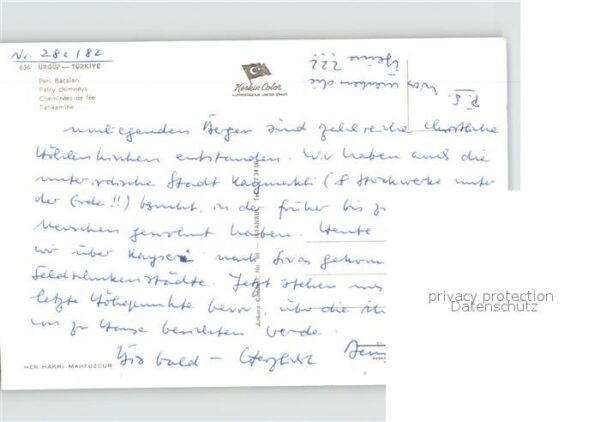 Nr. 28c/82
656 ÜRGÜP — TÜRKİYE
Peri Bacaları
Fairy chimneys
Cheminées de fée
Feinkamine
Keskin Color
P.S.
Was machen die
???
umliegenden Bergen sind zahlreiche christliche
Höhlenkirchen entstanden. Wir haben auch die
unterirdische Stadt Kaymakli (8 Stockwerke unter
der Erde!!) besucht, in der früher bis zu
Menschen gewohnt haben. Heute
wir über Kayseri nach Sivas
Jetzt stehen uns
letzte Höhepunkte bevor, über die ich
uns zu Hause berichten werde.
Bis bald — Herzlichst
HER HAKKI MAHFUZDUR
privacy protection
Datenschutz